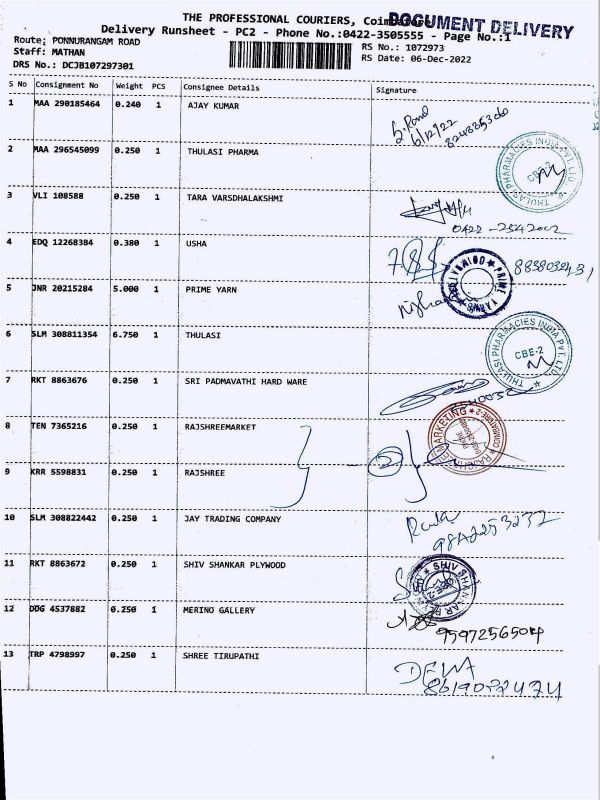 THE PROFESSIONAL COURIERS, Coimbatore
DOCUMENT DELIVERY
Delivery Runsheet - PC2 - Phone No.:0422-3505555 - Page No.:1
Route: PONNURANGAM ROAD
RS No.: 1072973
Staff: MATHAN
RS Date: 06-Dec-2022
DRS No.: DCJB107297301
S No Consignment No Weight PCS Consignee Details Signature
1 MAA 290185464 0.240 1 AJAY KUMAR
6/12/22
2 MAA 296545099 0.250 1 THULASI PHARMA
THULASI PHARMACIES INDIA PVT. LTD. CBE-2
3 VLI 108588 0.250 1 TARA VARSDHALAKSHMI
0422-2542002
4 EDQ 12268384 0.380 1 USHA
8838032431
5 JNR 20215284 5.000 1 PRIME YARN
PRIME YARNS
6 SLM 308811354 6.750 1 THULASI
THULASI PHARMACIES INDIA PVT. LTD. CBE-2
7 RKT 8863676 0.250 1 SRI PADMAVATHI HARD WARE
8 TEN 7365216 0.250 1 RAJSHREEMARKET
MARKETING
9 KRR 5598831 0.250 1 RAJSHREE
2
10 SLM 308822442 0.250 1 JAY TRADING COMPANY
11 RKT 8863672 0.250 1 SHIV SHANKAR PLYWOOD
SHIV SHANKAR
12 DDG 4537882 0.250 1 MERINO GALLERY
9597256504
13 TRP 4798997 0.250 1 SHREE TIRUPATHI
8619022474